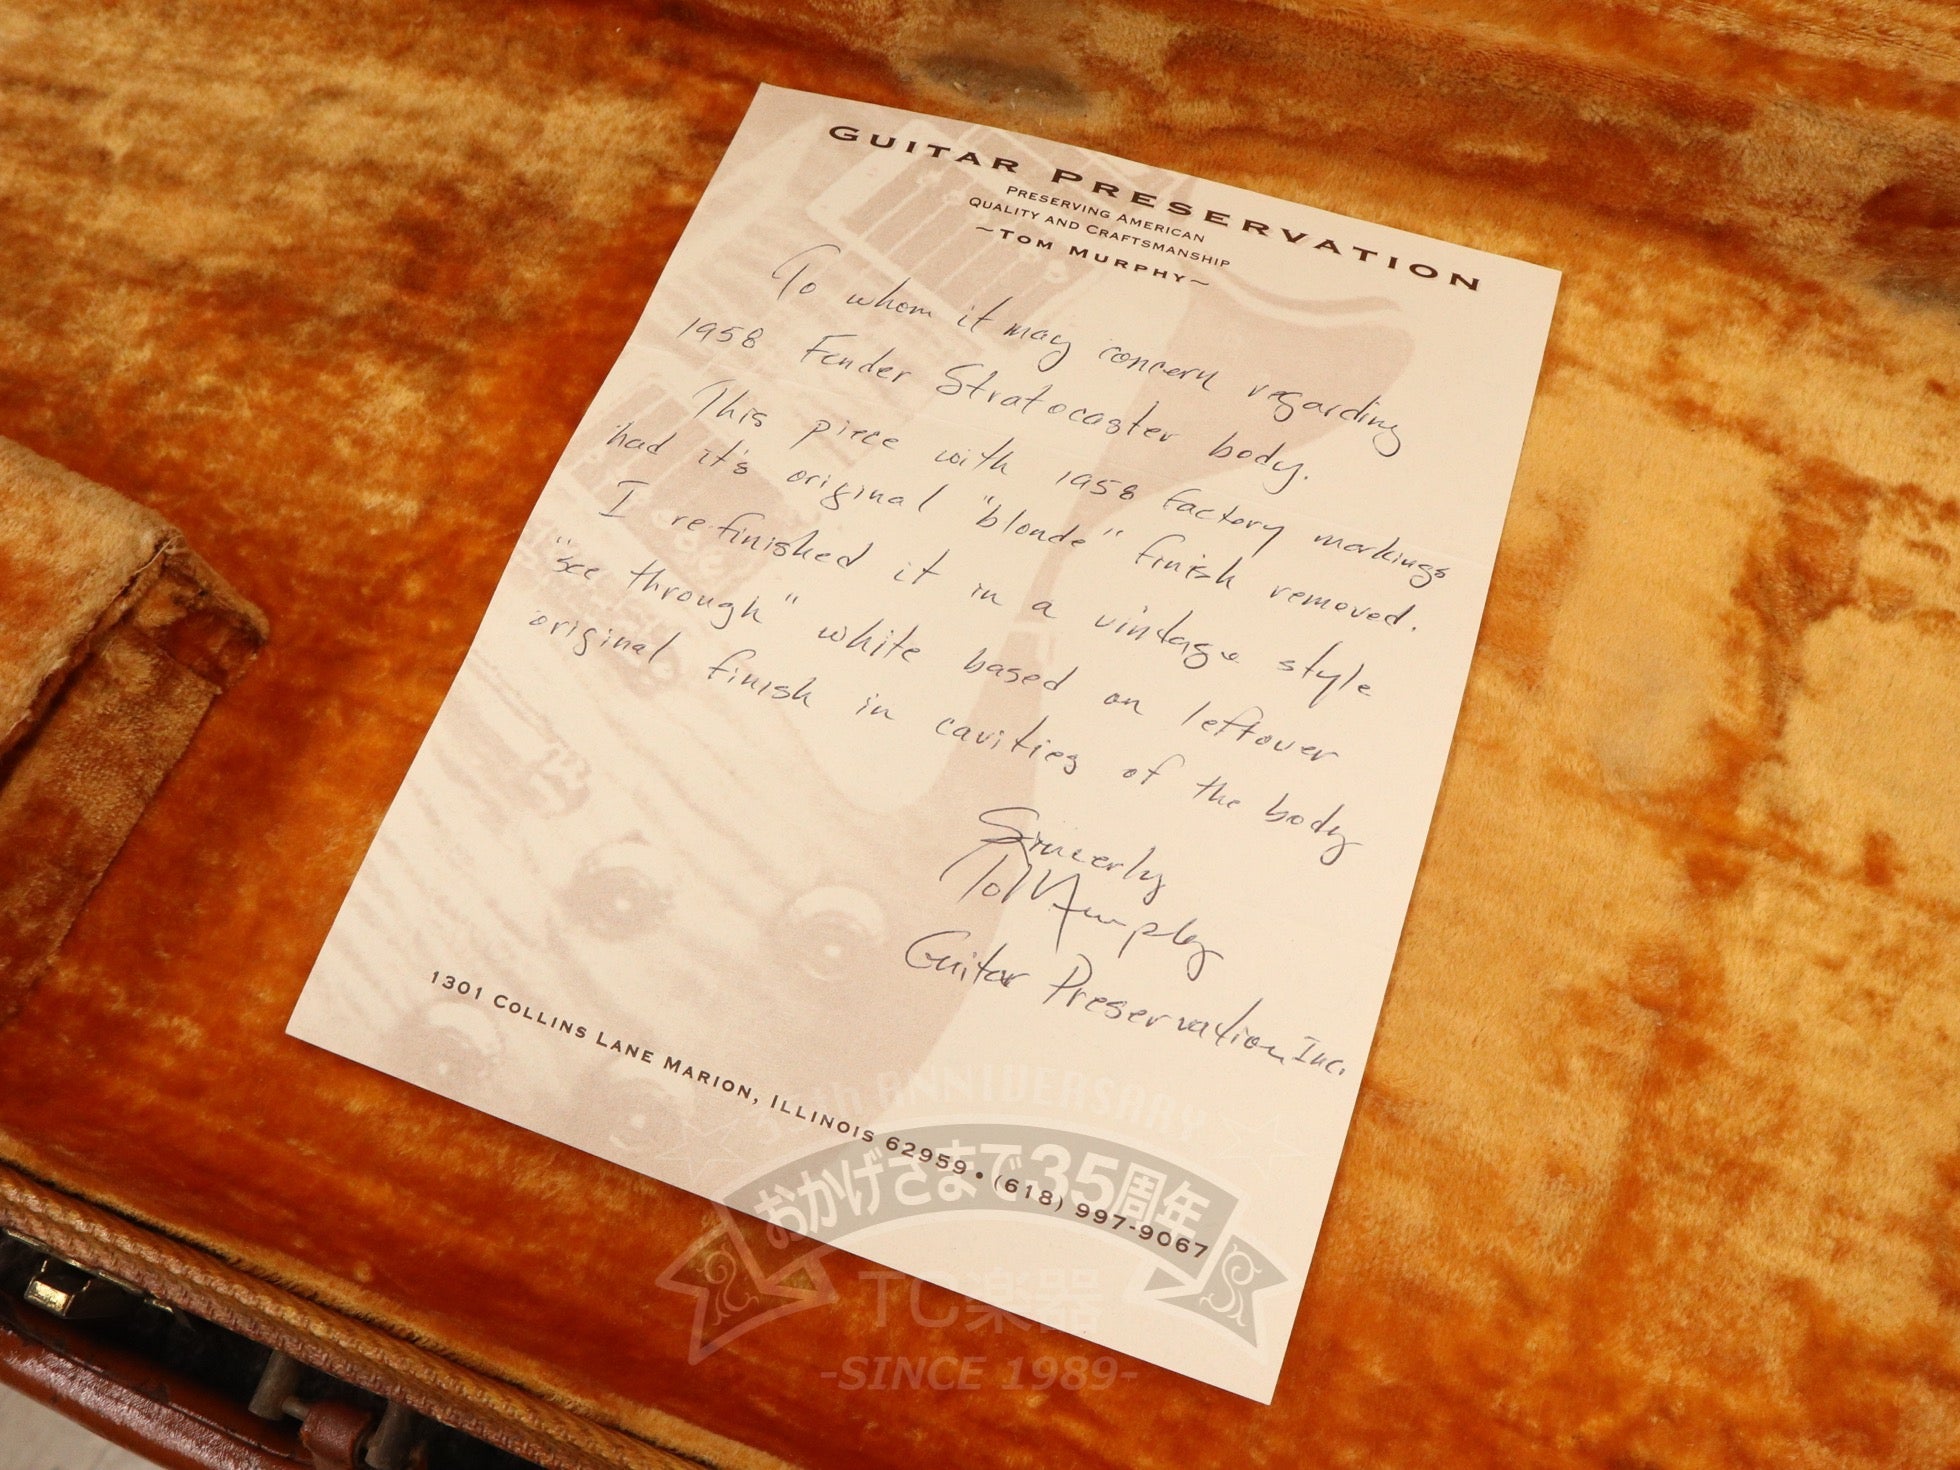 GUITAR PRESERVATION
PRESERVING AMERICAN
QUALITY AND CRAFTSMANSHIP
~TOM MURPHY~
To whom it may concern regarding
1958 Fender Stratocaster body.
This piece with 1958 factory markings
had it's original "blonde" finish removed.
I refinished it in a vintage style
"see through" white based on leftover
original finish in cavities of the body
Sincerly
Tom Murphy
Guitar Preservation Inc.
1301 COLLINS LANE MARION, ILLINOIS 62959 • (618) 997-9067
th ANNIVERSARY
おかげさまで35周年
TC楽器
-SINCE 1989-